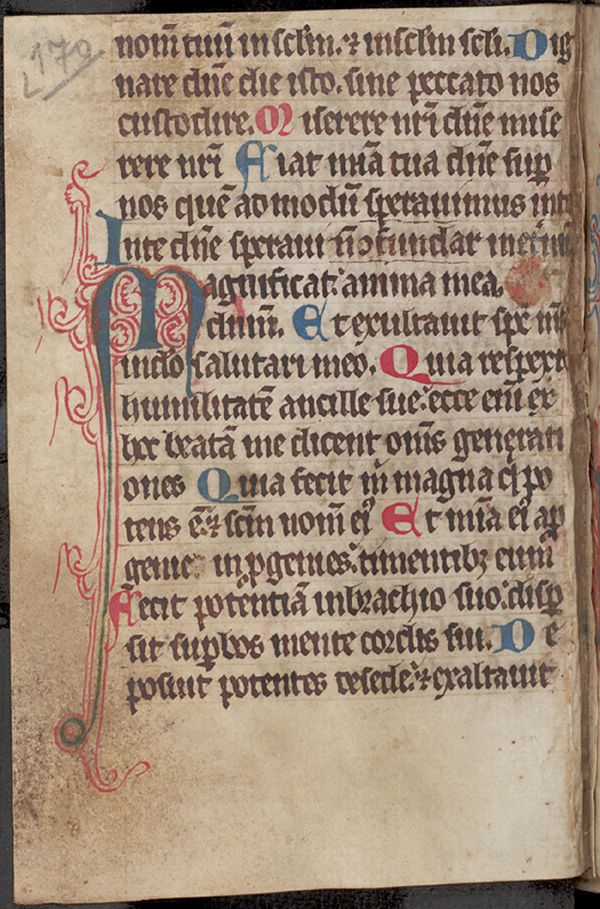 179.
nom̄ tuū in sclm̄. ⁊ in sclm̄ scli. Dig
nare dn̄e die isto. sine peccato nos
custodire. Miserere nr̄i dn̄e mise
rere nr̄i Fiat mīa tua dn̄e sup̄
nos quē ad modū speravimus in te
In te dn̄e speravi nō cōfundar in etnū
Magnificat. anima mea.
dnm̄. Et exultavit sp̄c ms̄
in deo salutari meo. Quia respexit
humilitatē ancille sue. ecce em̄ ex
hec beatā me dicent om̄s generati
ones Quia fecit m̄ magna q̄ po
tens ē. ⁊ scm̄ nom̄ eiꝰ Et mīa eiꝰ a p̄
genie in p̄genies. timentibꝫ eum
Fecit potentiā in brachio suo. disp̄
sit sup̄bos mente cordis sui. De
posuit potentes de sede. ⁊ exaltavit